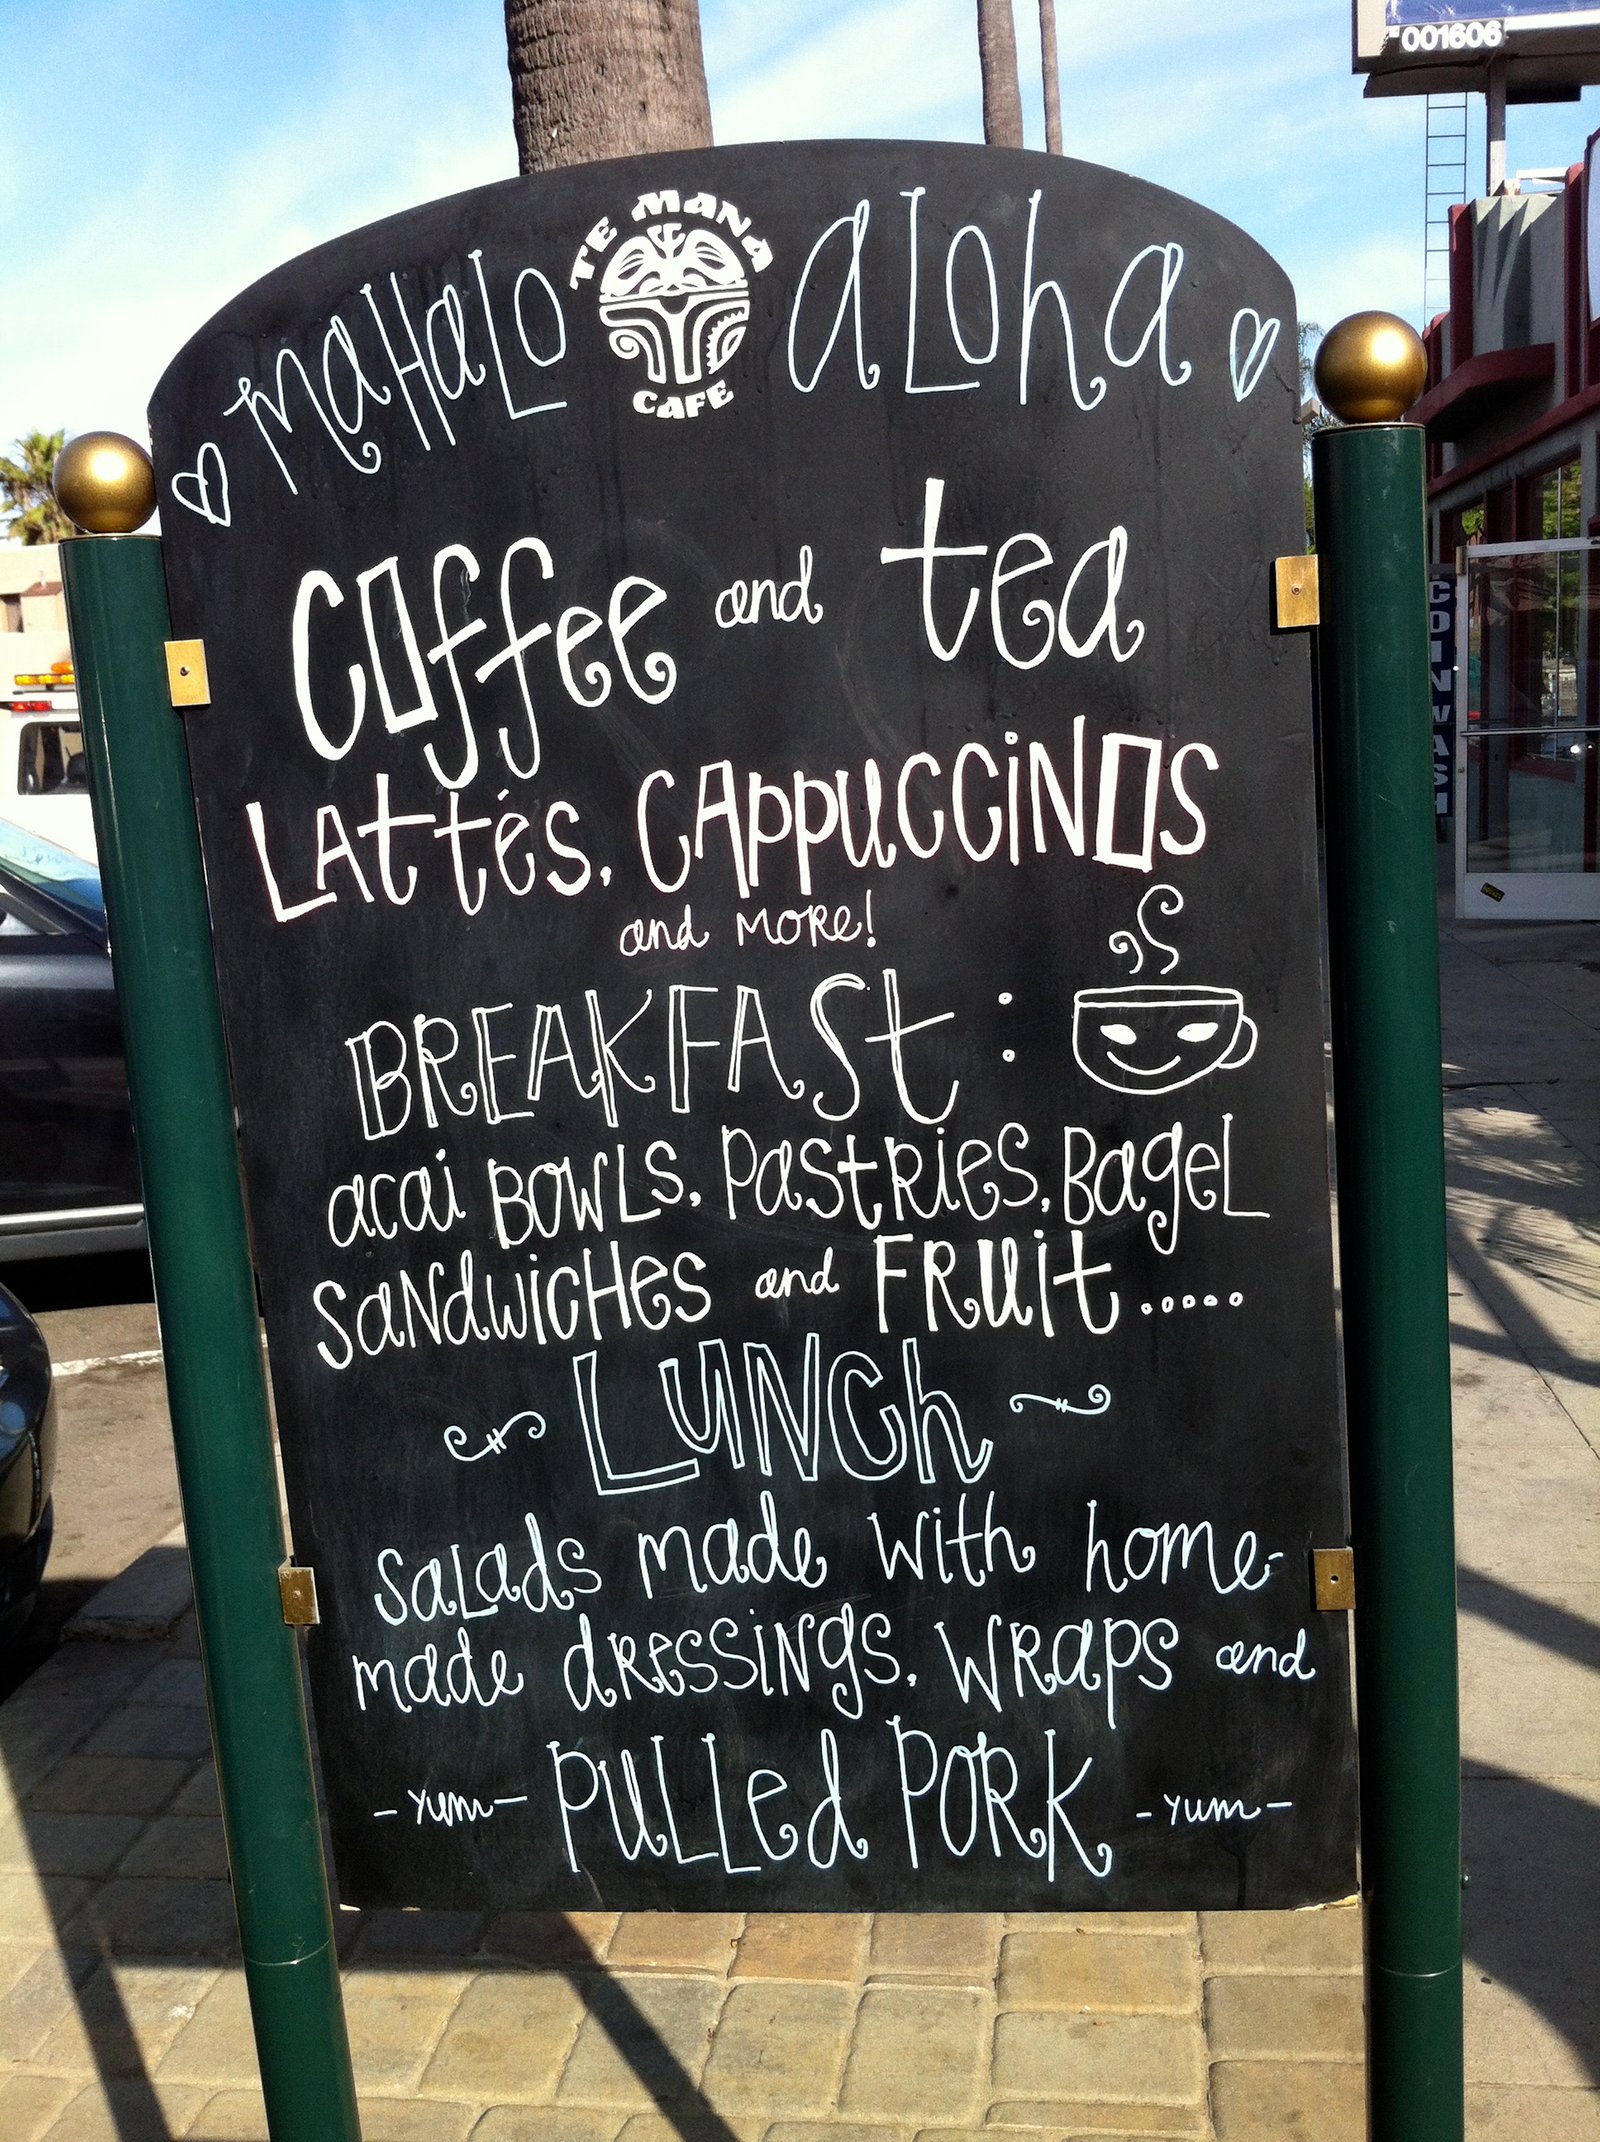 001606
MAHALO TE MANA CAFE ALOHA
COFFEE and tea
LAttés, CAppuccinos
and MORE!
BREAKFASt :
acai BOWLS, PastRies, BageL
SaNdwicHes and FRuit .....
LUNCh
SaLads made with home-
made dRessiNgs, WRaps and
- Yum - PuLLed PORK - Yum -
COIN WASH